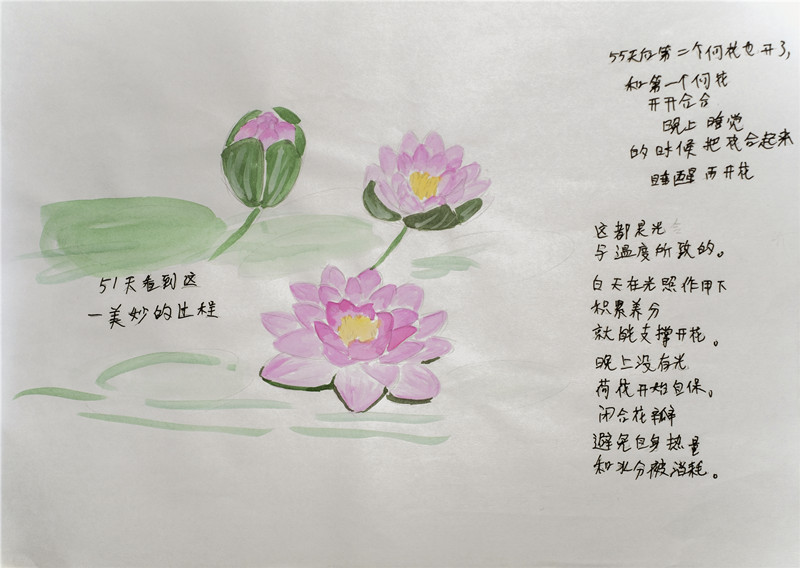 51天看到这
一美妙的过程
55天后第二个何花也开了,
和第一个何花
开开合合
晚上 睡觉
的时候把花合起来
睡醒而开花
这都是光
与温度所致的。
白天在光照作用下
积累养分
就能支撑开花。
晚上没有光
荷花开始自保。
闭合花瓣
避免自身热量
和水分被消耗。